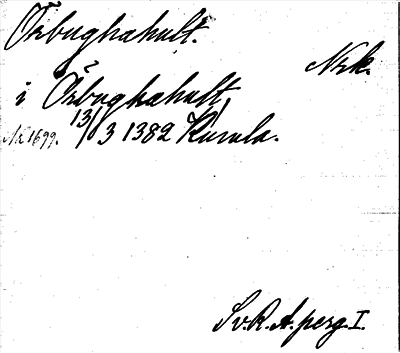 Örbughahult.
Nrk.
i Örbughahult
Nr 1699. 13/3 1382 Kumla.
Sv. R. A. perg. I.